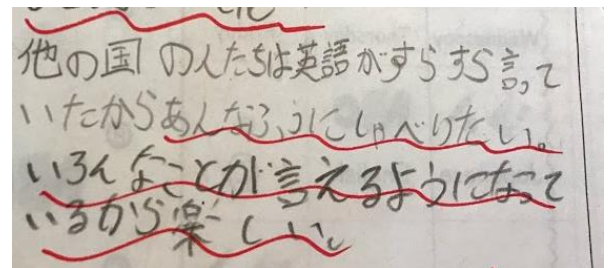 他の国の人たちは英語がすらすら言って
いたからあんなふうにしゃべりたい。
いろんなことが言えるようになって
いるから楽しい。